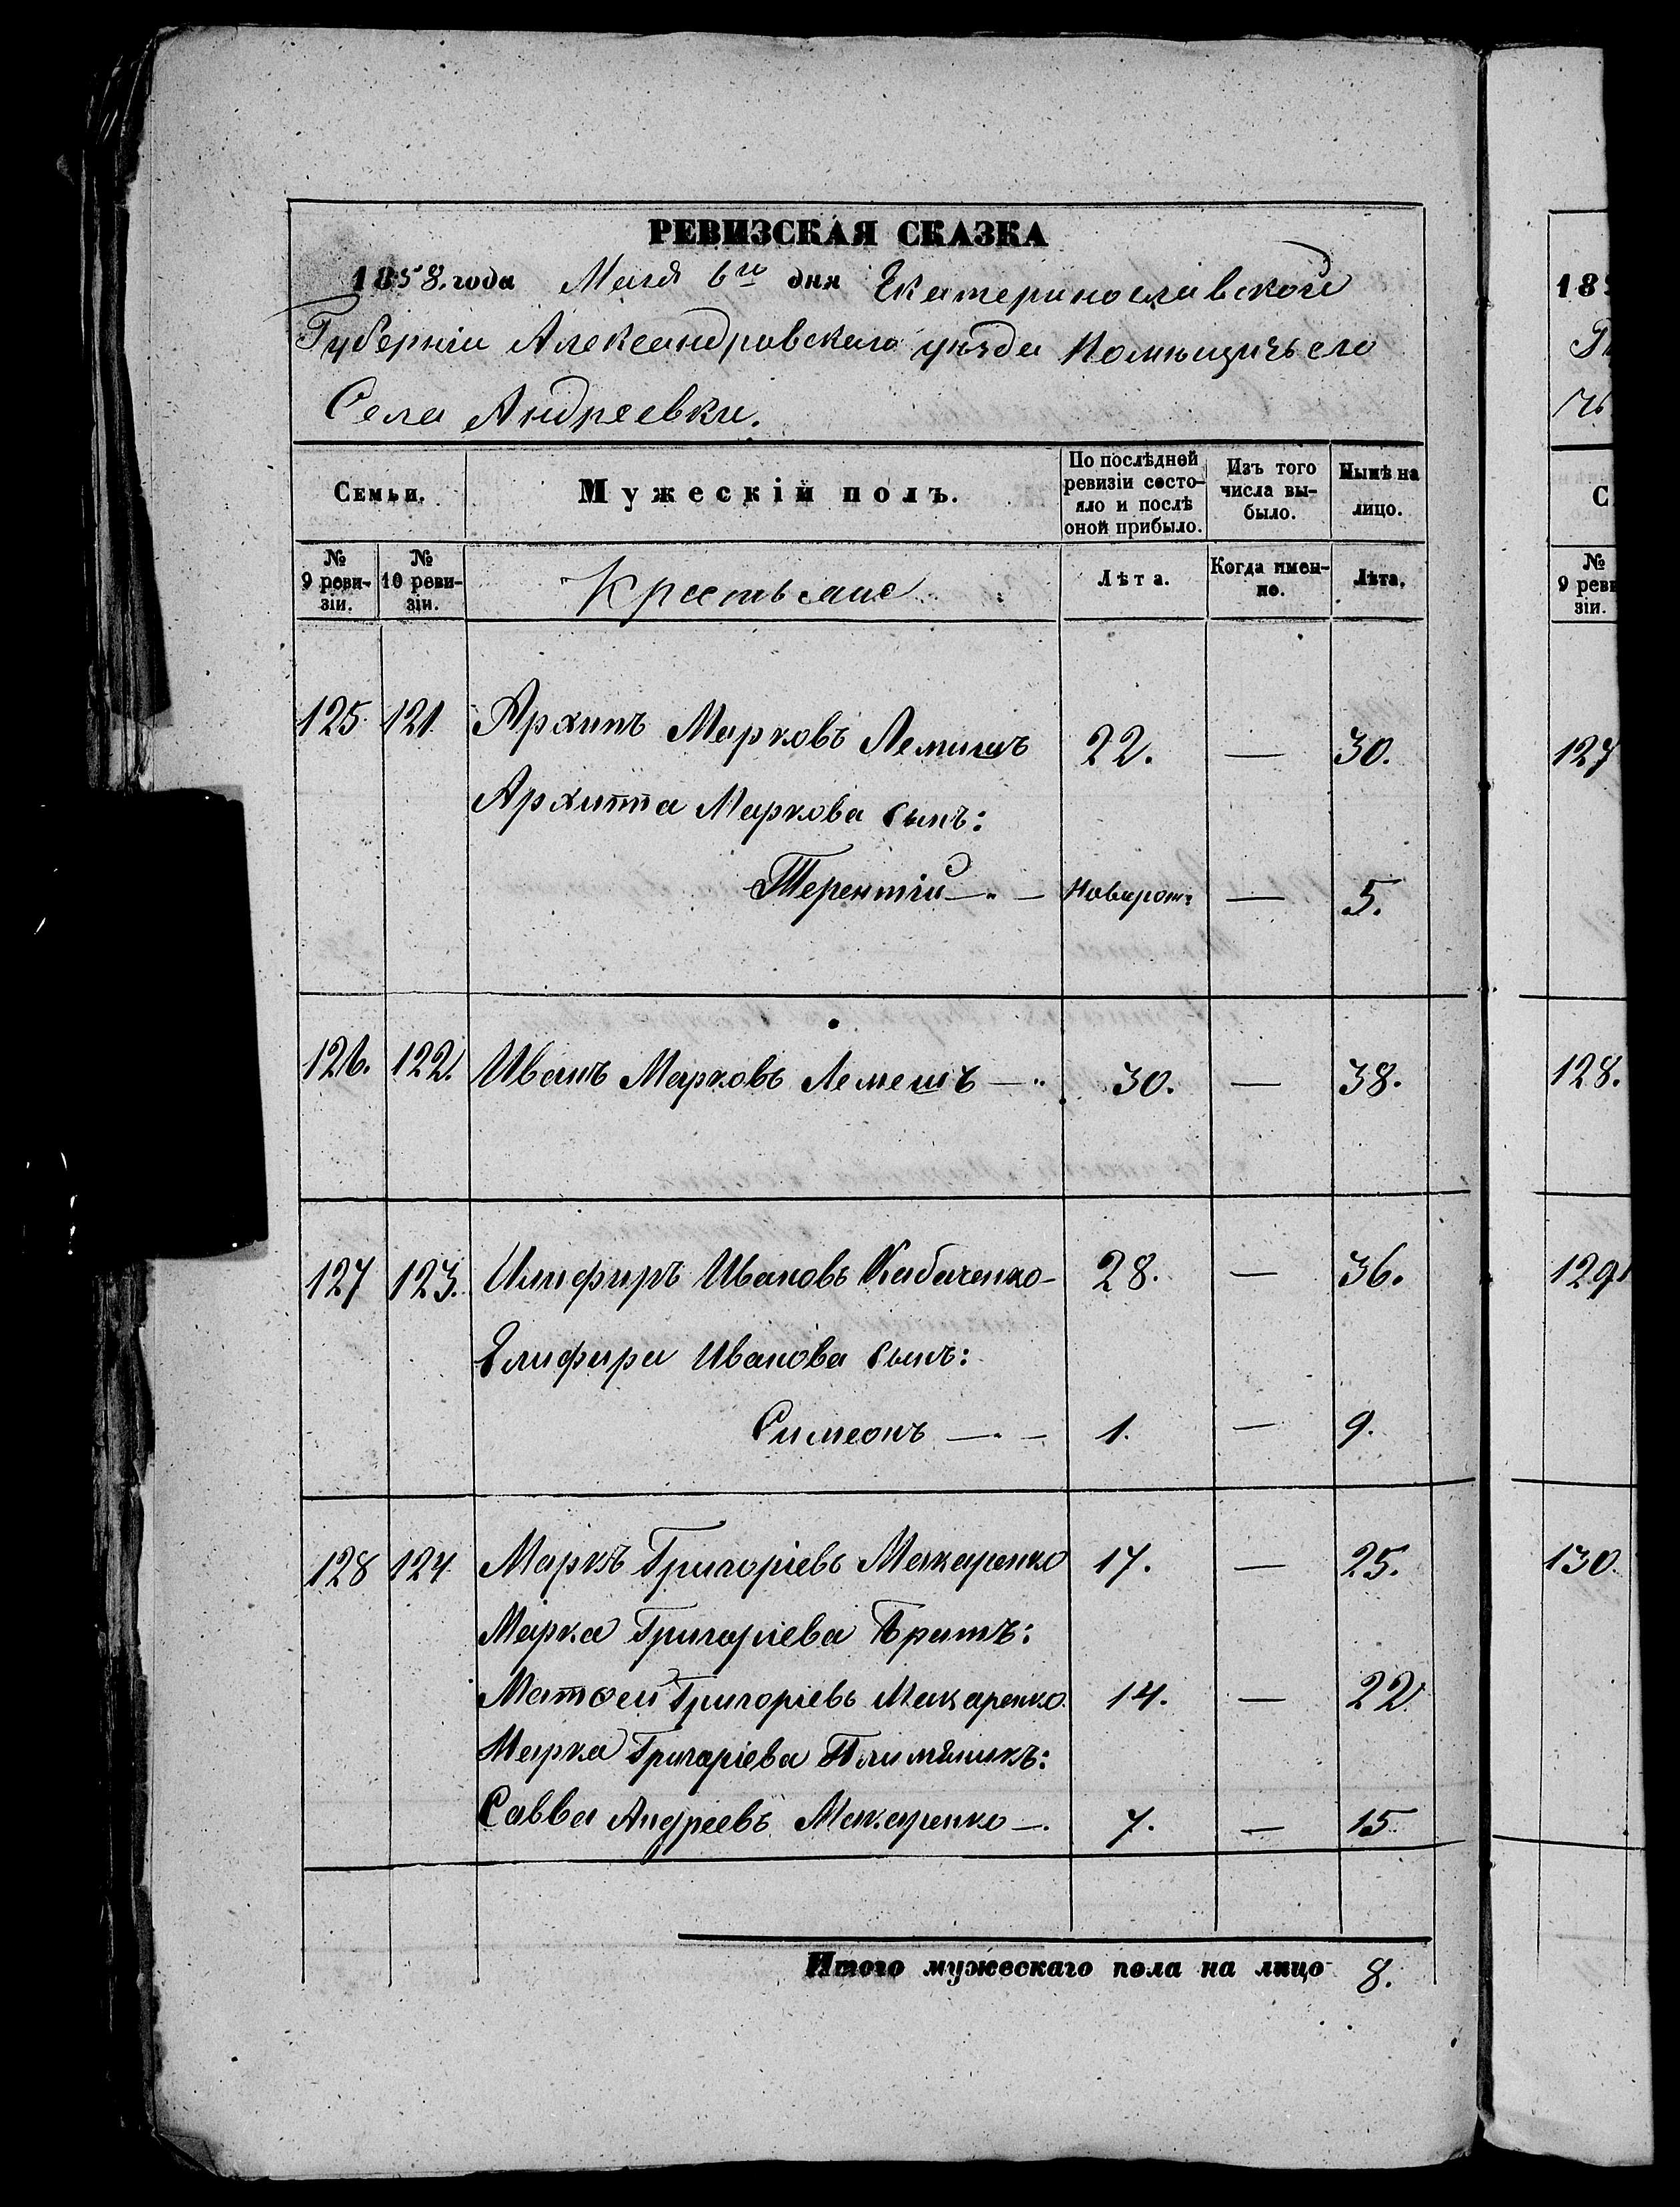 РЕВИЗСКАЯ СКАЗКА
1858. года Мая 6го дня Екатеринославской
Губерніи Александровскаго уѣзда Помѣщичьего
Села Андреевки.
Семьи. Мужескій полъ. По послѣдней ревизіи состояло и послѣ оной прибыло. Изъ того числа выбыло. Нынѣ на лицо.
№ 9 ревизіи. № 10 ревизіи. Крестьяне Лѣта. Когда именно. Лѣта.
125. 121. Архипъ Марковъ Лемишъ 22. — 30.
Архиппа Маркова сынъ:
Терентій — новорож: — 5.
126. 122. Иванъ Марковъ Лемешъ — 30. — 38.
127 123. Илифиръ Ивановъ Кабаченко 28. — 36.
Елифира Иванова сынъ:
Симеонъ — 1. — 9.
128 124 Маркъ Григоріевъ Макаренко 17. — 25.
Марка Григоріева Братъ:
Матѳей Григоріевъ Макаренко 14. — 22
Марка Григоріева Племяникъ:
Савва Андреевъ Макаренко — 7. — 15
Итого мужескаго пола на лицо 8.
18
№
9 реви
зіи.
127
128.
129.
130.